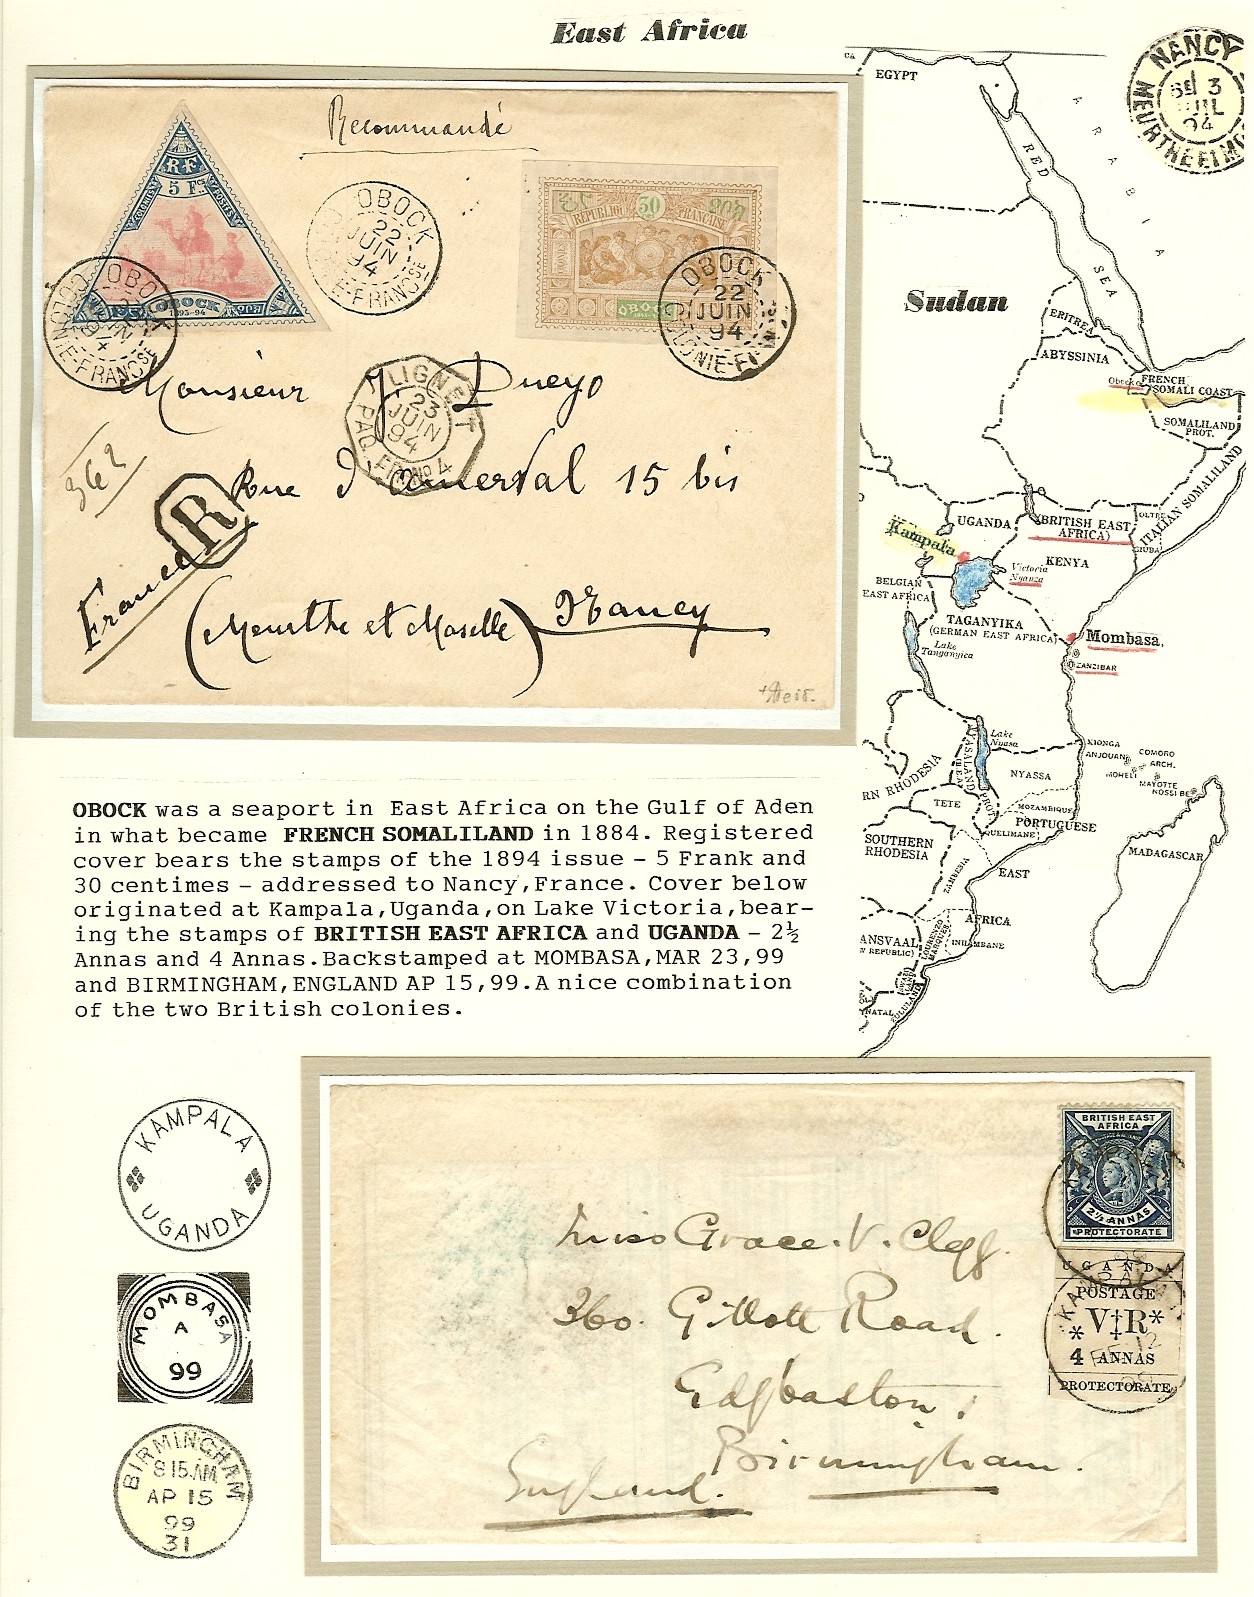 East Africa
Recommandé
RF
5 Fcs
COLONIES
POSTES
OBOCK
1893-94
OBOCK
22
JUIN
94
COLONIE-FRANCSE
OBOCK
22
JUIN
94
COLONIE-FRANCSE
REPUBLIQUE FRANCAISE
OBOCK
OBOCK
22
JUIN
94
Monsieur J Dueyo
LIGNE T
23
JUIN
94
PAQ. FR. No 4
362
R
Rue D'Amerval 15 bis
France
(Meurthe et Moselle) Nancy
NANCY
3
94
MEURTHE ET M
EGYPT
ARABIA
RED
SEA
Sudan
ERITREA
ABYSSINIA
Obock
FRENCH
SOMALI COAST
SOMALILAND
PROT.
ITALIAN SOMALILAND
OLTRE
GIUBA
UGANDA
(BRITISH EAST
AFRICA)
Kampala
KENYA
Victoria
Nyanza
BELGIAN
EAST AFRICA
TAGANYIKA
(GERMAN EAST AFRICA)
Mombasa,
Lake
Tanganyica
ZANZIBAR
Lake
Nyasa
KIONGA
ANJOUAN
COMORO
ARCH.
MOHELI
MAYOTTE
NOSSI BE
NYASSA
RN RHODESIA
NYASALAND
PROT.
TETE
MOZAMBIQUE
PORTUGUESE
QUELIMANE
SOUTHERN
RHODESIA
MADAGASCAR
EAST
ZAMBESIA
AFRICA
ANSVAAL
REPUBLIC)
LOURENZO
MARQUES
INHAMBANE
NATAL
ZULULAND
OBOCK was a seaport in East Africa on the Gulf of Aden
in what became FRENCH SOMALILAND in 1884. Registered
cover bears the stamps of the 1894 issue - 5 Frank and
30 centimes - addressed to Nancy,France. Cover below
originated at Kampala,Uganda,on Lake Victoria,bear-
ing the stamps of BRITISH EAST AFRICA and UGANDA - 2½
Annas and 4 Annas.Backstamped at MOMBASA,MAR 23,99
and BIRMINGHAM,ENGLAND AP 15,99.A nice combination
of the two British colonies.
KAMPALA
UGANDA
MOMBASA
A
99
BIRMINGHAM
8 15 AM
AP 15
99
31
BRITISH EAST
AFRICA
2½ ANNAS
PROTECTORATE
UGANDA
POSTAGE
*V‡R*
4 ANNAS
PROTECTORATE
KAMPALA
Miss Grace. V. Clegg.
360. Gillott Road.
Edgbaston,
Birmingham.
England.